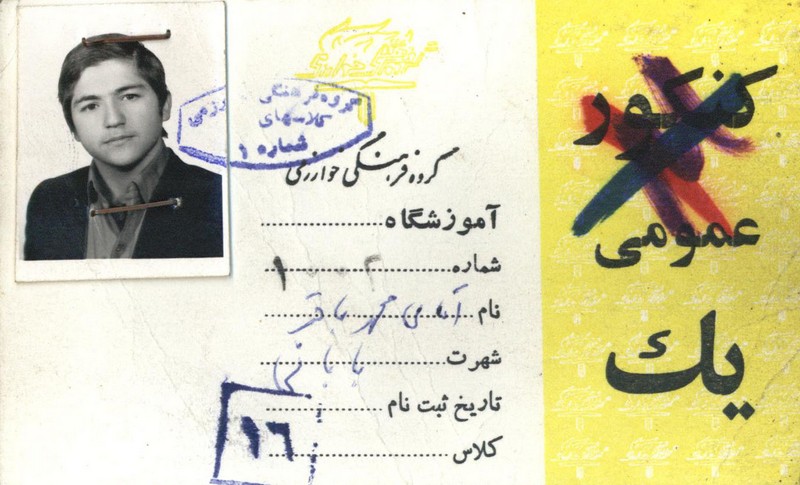 گروه فرهنگی خوارزمی
کلاسهای
شماره ۱
گروه فرهنگی خوارزمی
آموزشگاه
شماره ۱۰۰۲
نام آقای محمد باقر
شهرت
تاریخ ثبت نام
کلاس ۱۶
کنکور
عمومی
یک